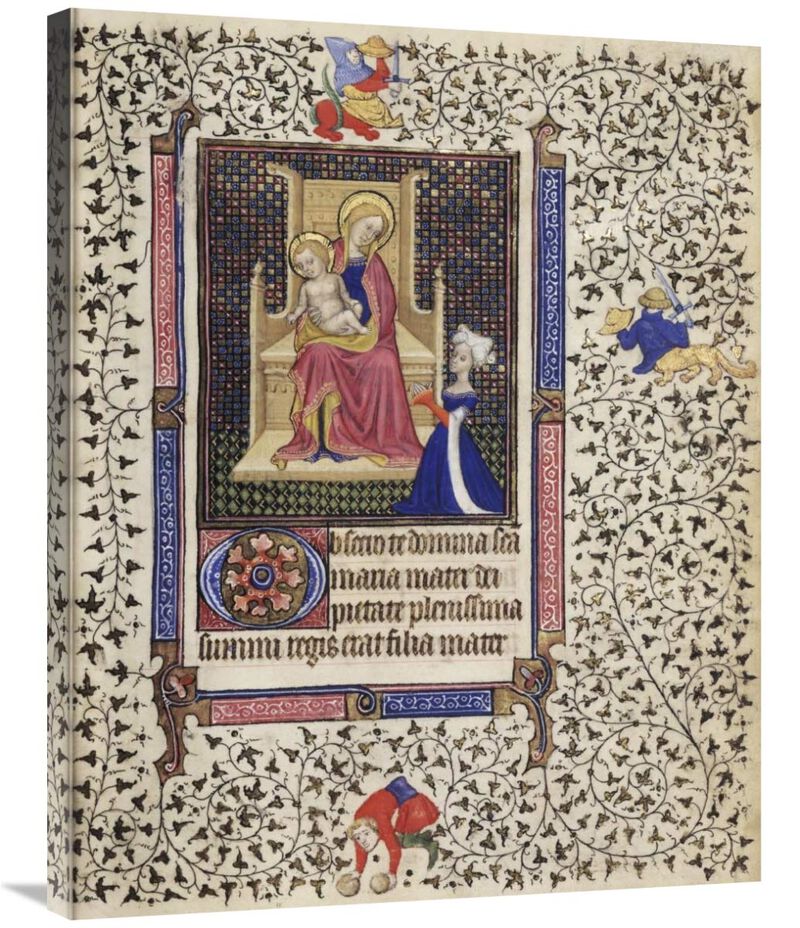 Obsecro te domina sc̄a
maria mater dei
pietate plenissima
summi regis et at filia mater